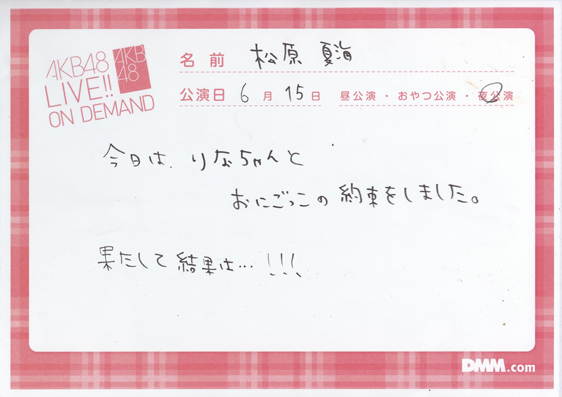 AKB48
LIVE!!
ON DEMAND
AKB
48
名前 松原 夏海
公演日 6月15日 昼公演・おやつ公演・夜公演
今日は、りなちゃんと
おにごっこの約束をしました。
果たして結果は…!!!
DMM.com